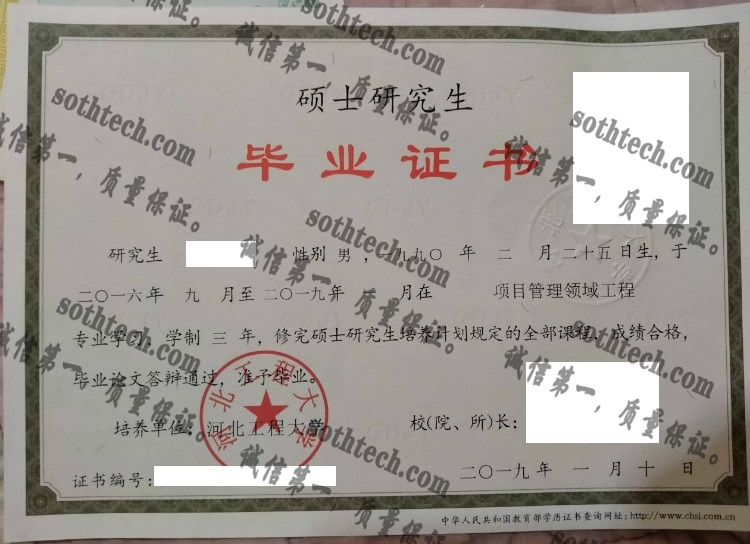 硕士研究生
毕业证书
研究生 性别 男 ，一九九〇 年 二 月 二十五日生，于
二〇一六年 九 月至 二〇一九年 月在 项目管理领域工程
专业学习，学制 三 年，修完硕士研究生培养计划规定的全部课程，成绩合格，
毕业论文答辩通过，准予毕业。
培养单位：河北工程大学
校(院、所)长：
河北工程大学
证书编号：
二〇一九年 一 月 十 日
中华人民共和国教育部学历证书查询网址：http://www.chsi.com.cn
sothtech.com
诚信第一，质量保证。
sothtech.com
诚信第一，质量保证。
sothtech.com
诚信第一，质量保证。
sothtech.com
诚信第一，质量保证。
sothtech.com
诚信第一，质量保证。
sothtech.com
诚信第一，质量保证。
sothtech.com
诚信第一，质量保证。